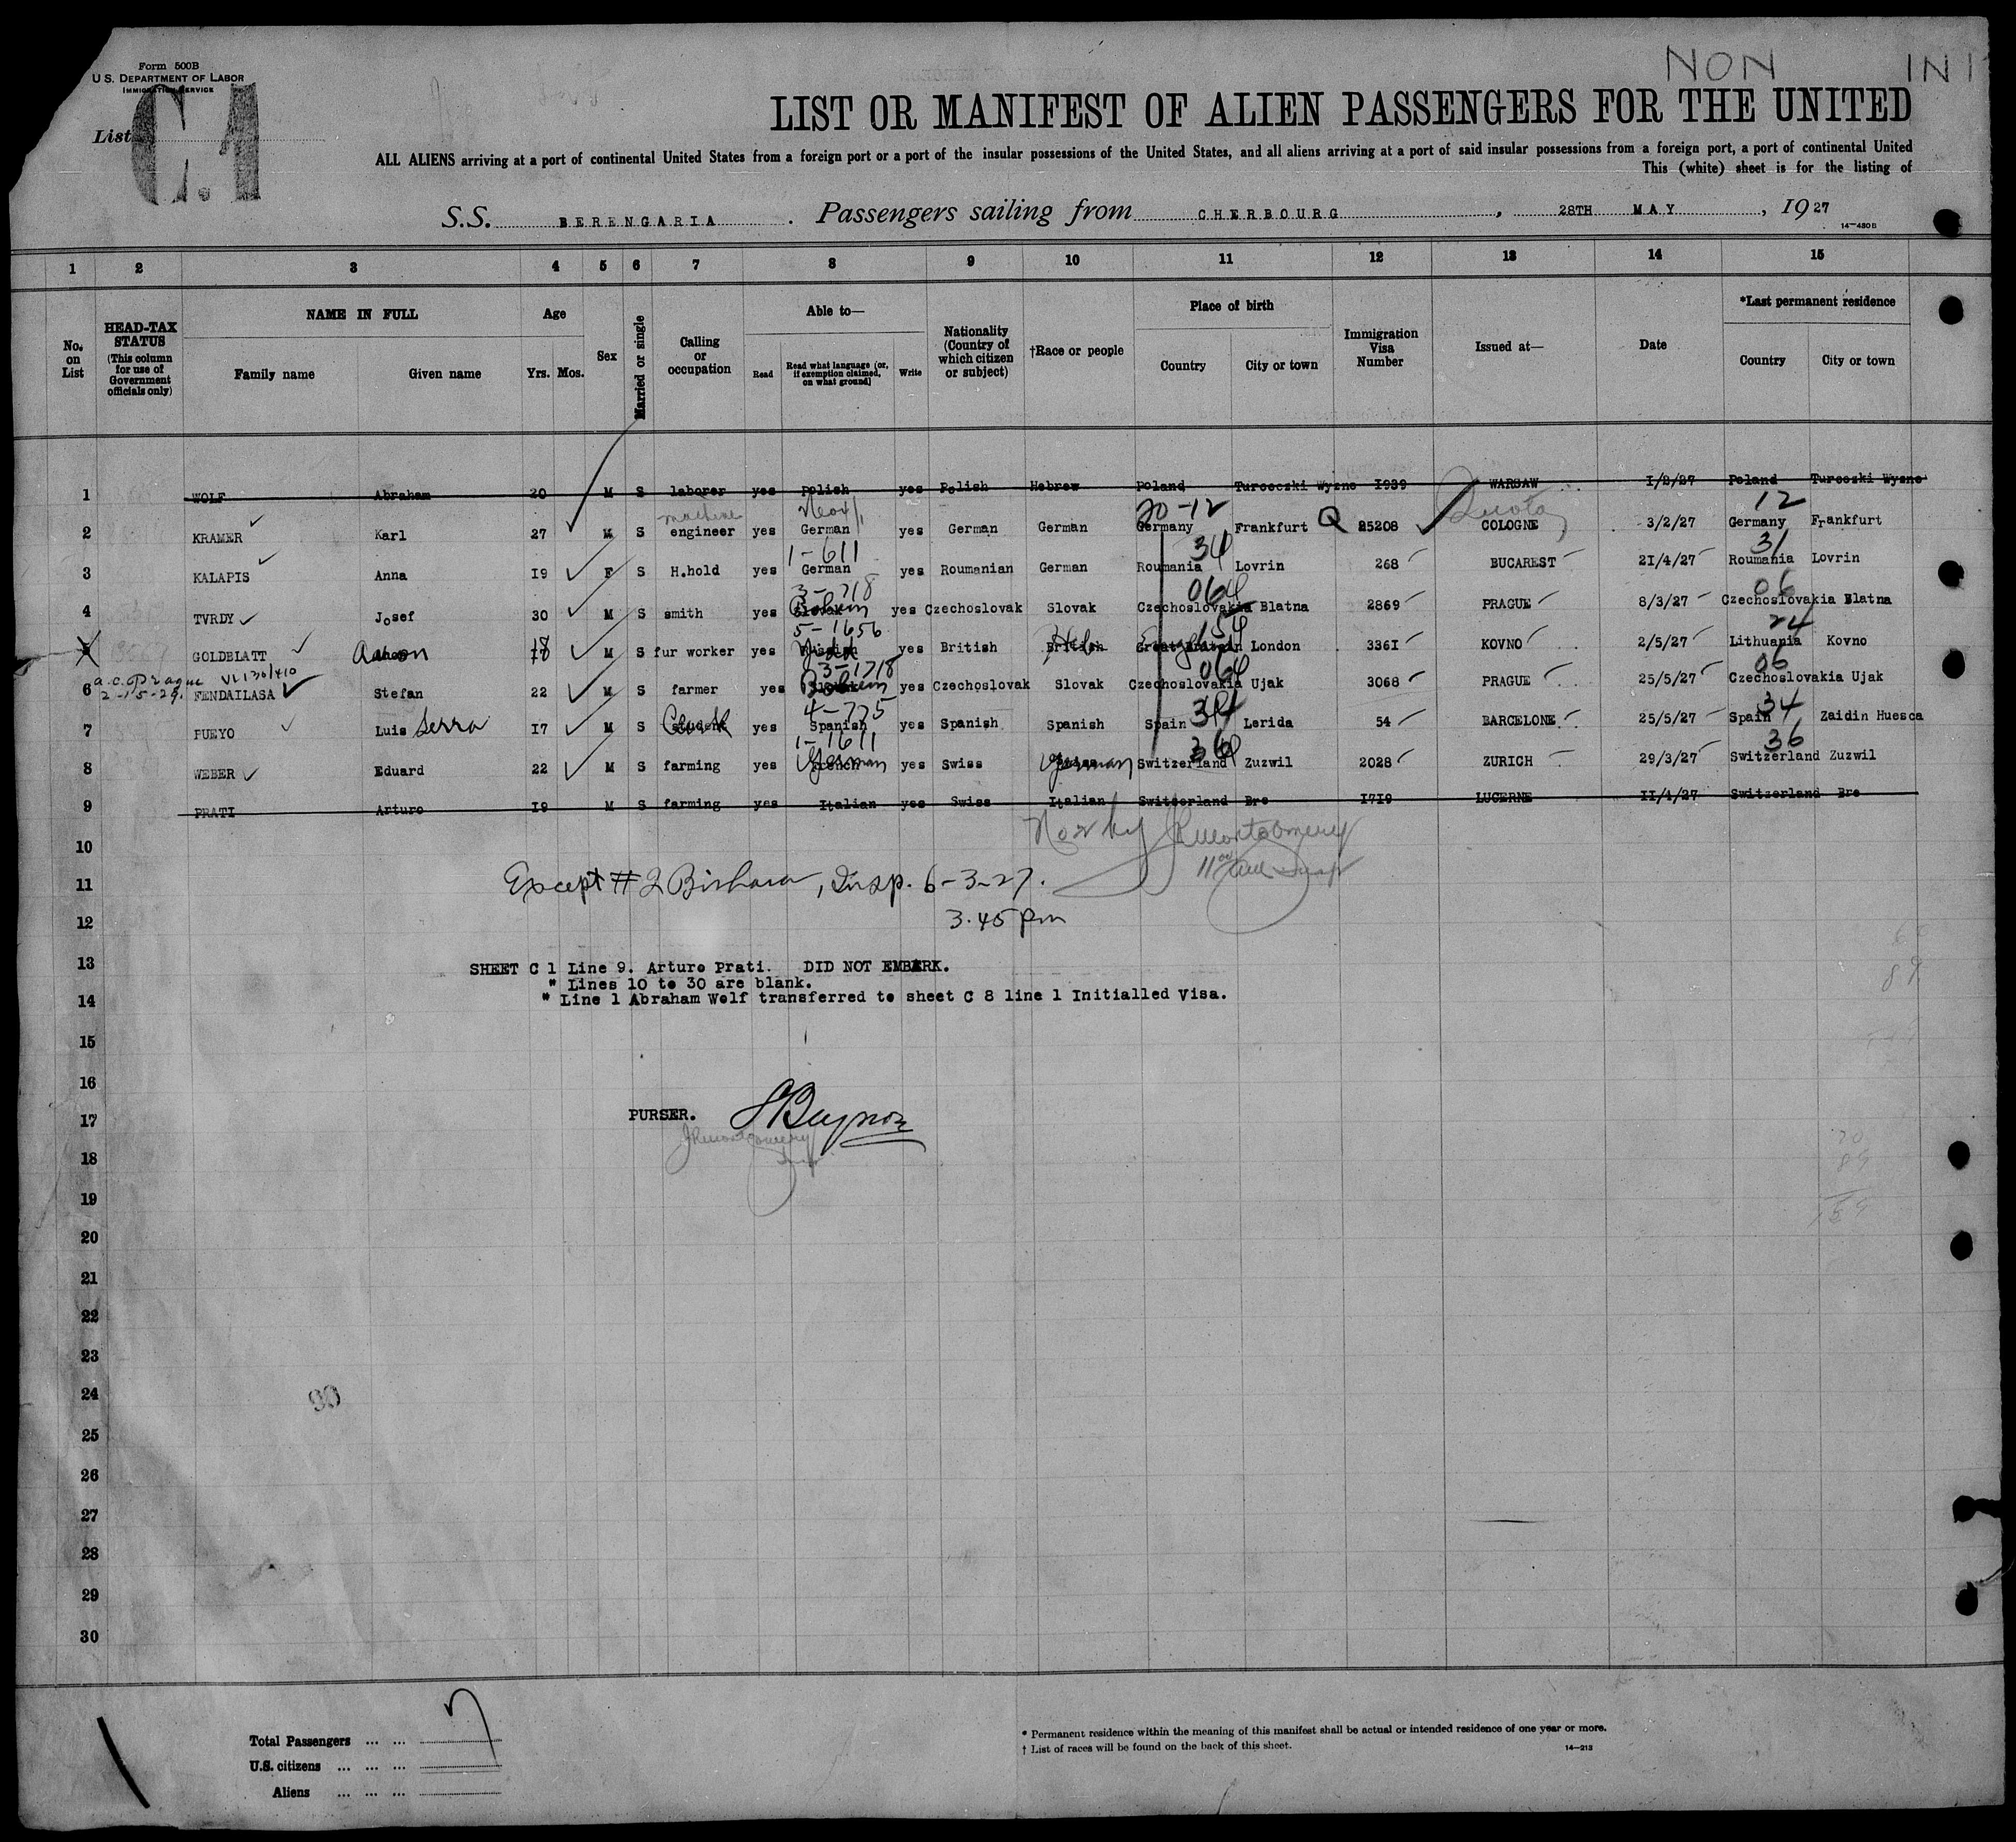 NON INIT
Form 500B
U.S. DEPARTMENT OF LABOR
IMMIGRATION SERVICE
List C.1
LIST OR MANIFEST OF ALIEN PASSENGERS FOR THE UNITED
ALL ALIENS arriving at a port of continental United States from a foreign port or a port of the insular possessions of the United States, and all aliens arriving at a port of said insular possessions from a foreign port, a port of continental United
This (white) sheet is for the listing of
S.S. BERENGARIA. Passengers sailing from CHERBOURG, 28TH MAY, 1927
14—480B
1 2 3 4 5 6 7 8 9 10 11 12 13 14 15
No. on List
HEAD-TAX STATUS (This column for use of Government officials only)
NAME IN FULL
Family name Given name
Age
Yrs. Mos.
Sex
Married or single
Calling or occupation
Able to—
Read Read what language (or, if exemption claimed, on what ground) Write
Nationality (Country of which citizen or subject)
†Race or people
Place of birth
Country City or town
Immigration Visa Number
Issued at—
Date
*Last permanent residence
Country City or town
1 WOLF Abraham 20 M S laborer yes Polish yes Polish Hebrew Poland Tureeczki Wyzne 1939 WARSAW 1/2/27 Poland Tureeszki Wyzne
machine 20-12 Quota 12
2 KRAMER Karl 27 M S engineer yes German yes German German Germany Frankfurt Q 25208 COLOGNE 3/2/27 Germany Frankfurt
1-611 34 31
3 KALAPIS Anna 19 F S H.hold yes German yes Roumanian German Roumania Lovrin 268 BUCAREST 21/4/27 Roumania Lovrin
3-718 064 06
4 TVRDY Josef 30 M S smith yes Slovak yes Czechoslovak Slovak Czechoslovakia Blatna 2869 PRAGUE 8/3/27 Czechoslovakia Blatna
5-1656 154 24
5 GOLDBLATT Aaron 18 M S fur worker yes yes British British Great Britain London 3361 KOVNO 2/5/27 Lithuania Kovno
a.c. Prague 3-1718 064 06
6 2-15-29. FENDAILASA Stefan 22 M S farmer yes yes Czechoslovak Slovak Czechoslovakia Ujak 3068 PRAGUE 25/5/27 Czechoslovakia Ujak
4-775 34 34
7 PUEYO Luis Serra 17 M S student yes Spanish yes Spanish Spanish Spain Lerida 54 BARCELONE 25/5/27 Spain Zaidin Huesca
1-1611 364 36
8 WEBER Eduard 22 M S farming yes German yes Swiss German Switzerland Zuzwil 2028 ZURICH 29/3/27 Switzerland Zuzwil
9 PRATI Arturo 19 M S farming yes Italian yes Swiss Italian Switzerland Bre 1719 LUCERNE 11/4/27 Switzerland Bre
10
11 Except #2 Bishara, Insp. 6-3-27.
12 3.45 pm
13 SHEET C 1 Line 9. Arturo Prati. DID NOT EMBARK.
" Lines 10 to 30 are blank.
14 " Line 1 Abraham Wolf transferred to sheet C 8 line 1 Initialled Visa.
15
16
17 PURSER.
18
19
20
21
22
23
24
25
26
27
28
29
30
Total Passengers ... ... 7
U.S. citizens ... ... ...
Aliens ... ... ...
* Permanent residence within the meaning of this manifest shall be actual or intended residence of one year or more.
† List of races will be found on the back of this sheet.
14—213